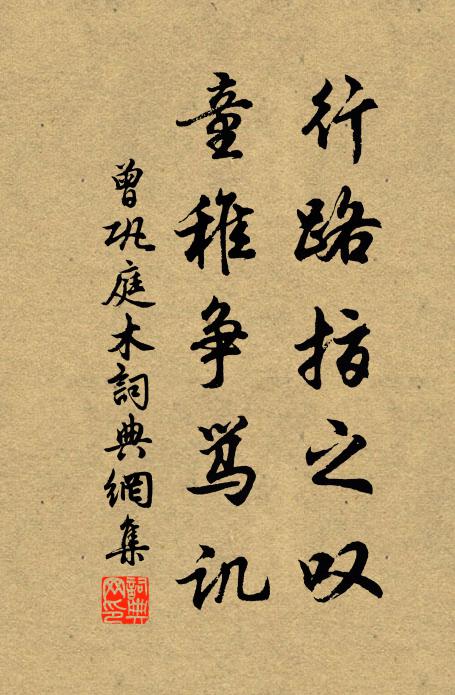 行路指之叹
童稚争骂讥
曾巩庭木詞典網集
詞典网印